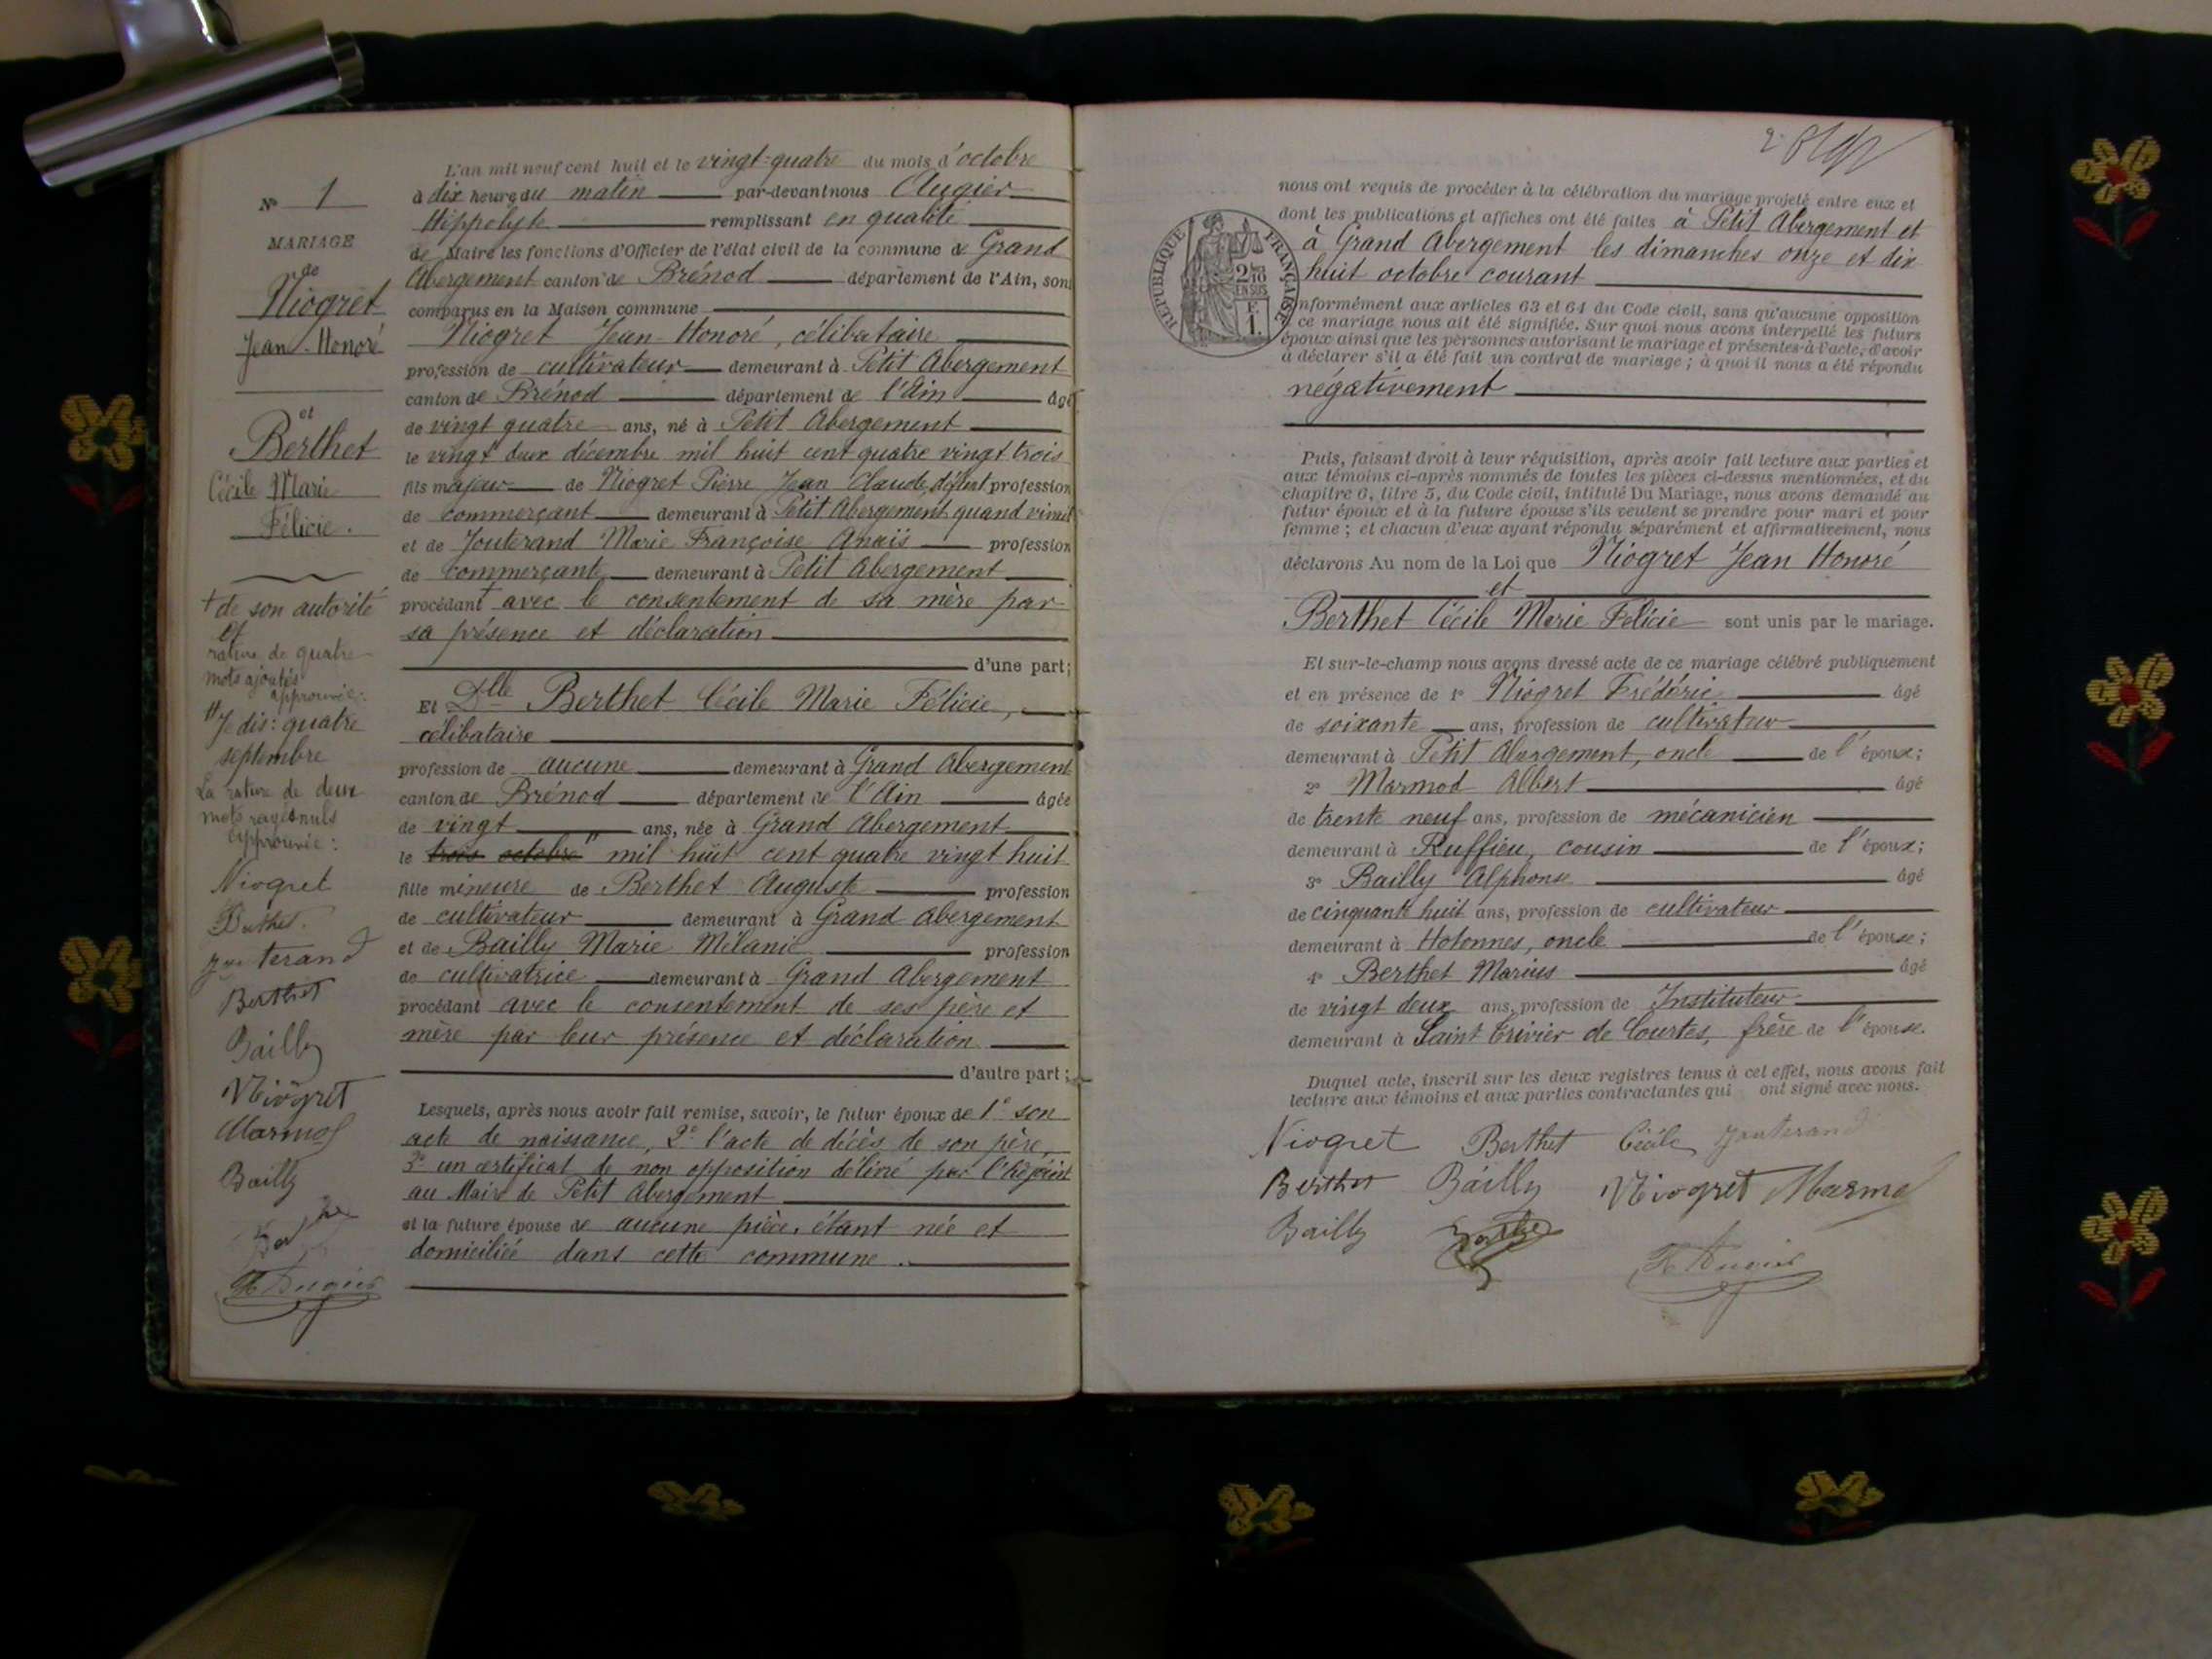 N° 1
MARIAGE
de
Niogret
Jean-Honoré
et
Berthet
Cécile Marie
Félicie.
+ de son autorité
et
rature de quatre
mots ajoutés
approuvée:
" Je dis: quatre
septembre
La rature de deux
mots rayés nuls
approuvée:
Niogret
Berthet.
Jouterand
Berthet
Bailly
Niogret
Marmod
Bailly
H Augier
L'an mil neuf cent huit et le vingt-quatre du mois d'octobre
à dix heures du matin par-devant nous Augier
Hippolyte remplissant en qualité
de Maire les fonctions d'Officier de l'état civil de la commune de Grand
Abergement canton de Brénod département de l'Ain, sont
comparus en la Maison commune
Niogret Jean-Honoré, célibataire
profession de cultivateur demeurant à Petit Abergement
canton de Brénod département de l'Ain âgé
de vingt quatre ans, né à Petit Abergement
le vingt deux décembre mil huit cent quatre vingt trois
fils majeur de Niogret Pierre Jean Claude, défunt profession
de commerçant demeurant à Petit Abergement quand vivait
et de Jouterand Marie Françoise Anaïs profession
de commerçante demeurant à Petit Abergement
procédant + avec le consentement de sa mère par
sa présence et déclaration
d'une part;
Et Dlle Berthet Cécile Marie Félicie,
célibataire
profession de aucune demeurant à Grand Abergement
canton de Brénod département de l'Ain âgée
de vingt ans, née à Grand Abergement
le trois octobre " mil huit cent quatre vingt huit
fille mineure de Berthet Auguste profession
de cultivateur demeurant à Grand Abergement
et de Bailly Marie Mélanie profession
de cultivatrice demeurant à Grand Abergement
procédant avec le consentement de ses père et
mère par leur présence et déclaration
d'autre part;
Lesquels, après nous avoir fait remise, savoir, le futur époux de 1° son
acte de naissance, 2° l'acte de décès de son père,
3° un certificat de non opposition délivré par l'Adjoint
au Maire de Petit Abergement
et la future épouse de aucune pièce, étant née et
domiciliée dans cette commune.
nous ont requis de procéder à la célébration du mariage projeté entre eux et
dont les publications et affiches ont été faites à Petit Abergement et
à Grand Abergement les dimanches onze et dix
huit octobre courant
RÉPUBLIQUE FRANÇAISE
2/10
EN SUS
F.
1.
nformément aux articles 63 et 64 du Code civil, sans qu'aucune opposition
à ce mariage nous ait été signifiée. Sur quoi nous avons interpellé les futurs
époux ainsi que les personnes autorisant le mariage et présentes à l'acte, d'avoir
à déclarer s'il a été fait un contrat de mariage; à quoi il nous a été répondu
négativement
Puis, faisant droit à leur réquisition, après avoir fait lecture aux parties et
aux témoins ci-après nommés de toutes les pièces ci-dessus mentionnées, et du
chapitre 6, titre 5, du Code civil, intitulé Du Mariage, nous avons demandé au
futur époux et à la future épouse s'ils veulent se prendre pour mari et pour
femme; et chacun d'eux ayant répondu séparément et affirmativement, nous
déclarons Au nom de la Loi que Niogret Jean Honoré
et
Berthet Cécile Marie Félicie sont unis par le mariage.
Et sur-le-champ nous avons dressé acte de ce mariage célébré publiquement
et en présence de 1° Niogret Frédéric âgé
de soixante ans, profession de cultivateur
demeurant à Petit Abergement, oncle de l'époux;
2° Marmod Albert âgé
de trente neuf ans, profession de mécanicien
demeurant à Ruffieu, cousin de l'époux;
3° Bailly Alphonse âgé
de cinquante huit ans, profession de cultivateur
demeurant à Hotonnes, oncle de l'épouse;
4° Berthet Marius âgé
de vingt deux ans, profession de Instituteur
demeurant à Saint Trivier de Courtes, frère de l'épouse.
Duquel acte, inscrit sur les deux registres tenus à cet effet, nous avons fait
lecture aux témoins et aux parties contractantes qui ont signé avec nous.
Niogret Berthet Cécile Jouterand
Berthet Bailly Niogret Marmod
Bailly
H Augier